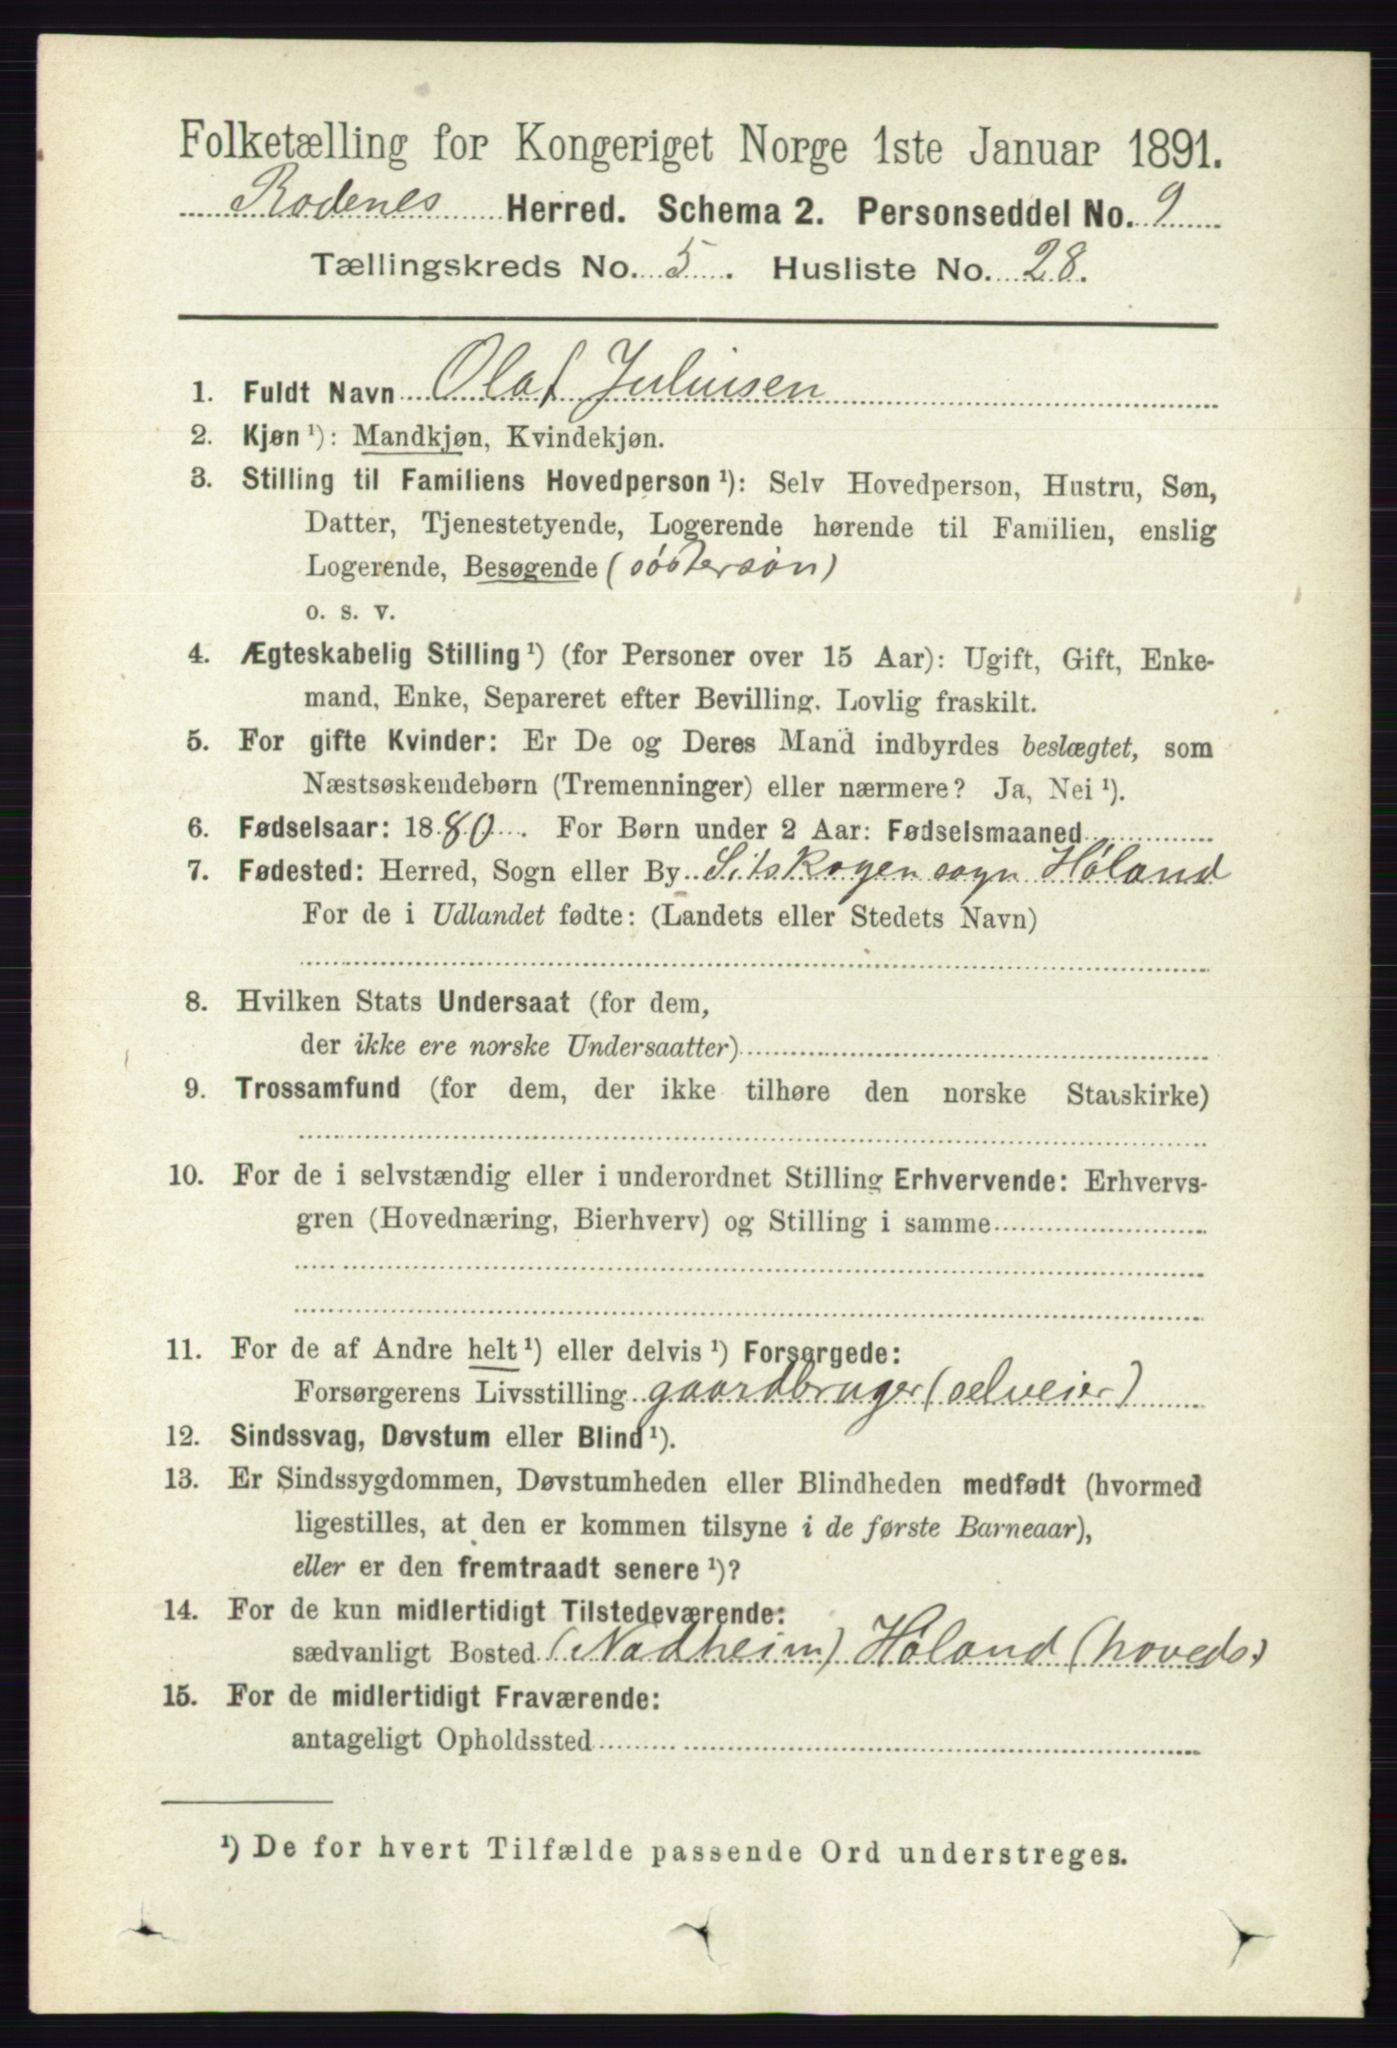 Folketælling for Kongeriget Norge 1ste Januar 1891.
Rødenes Herred. Schema 2. Personseddel No. 9
Tællingskreds No. 5. Husliste No. 28.
1. Fuldt Navn Olaf Juliusen
2. Kjøn ¹): Mandkjøn, Kvindekjøn.
3. Stilling til Familiens Hovedperson ¹): Selv Hovedperson, Hustru, Søn,
Datter, Tjenestetyende, Logerende hørende til Familien, enslig
Logerende, Besøgende (søstersøn)
o. s. v.
4. Ægteskabelig Stilling ¹) (for Personer over 15 Aar): Ugift, Gift, Enke-
mand, Enke, Separeret efter Bevilling. Lovlig fraskilt.
5. For gifte Kvinder: Er De og Deres Mand indbyrdes beslægtet, som
Næstsøskendebørn (Tremenninger) eller nærmere? Ja, Nei ¹).
6. Fødselsaar: 1880. For Børn under 2 Aar: Fødselsmaaned
7. Fødested: Herred, Sogn eller By Sitskogen sogn Høland
For de i Udlandet fødte: (Landets eller Stedets Navn)
8. Hvilken Stats Undersaat (for dem,
der ikke ere norske Undersaatter)
9. Trossamfund (for dem, der ikke tilhøre den norske Statskirke)
10. For de i selvstændig eller i underordnet Stilling Erhvervende: Erhvervs-
gren (Hovednæring, Bierhverv) og Stilling i samme
11. For de af Andre helt ¹) eller delvis ¹) Forsørgede:
Forsørgerens Livsstilling gaardbruger (selveier)
12. Sindssvag, Døvstum eller Blind ¹).
13. Er Sindssygdommen, Døvstumheden eller Blindheden medfødt (hvormed
ligestilles, at den er kommen tilsyne i de første Barneaar),
eller er den fremtraadt senere ¹)?
14. For de kun midlertidigt Tilstedeværende:
sædvanligt Bosted (Nadheim) Høland (hoveds)
15. For de midlertidigt Fraværende:
antageligt Opholdssted
¹) De for hvert Tilfælde passende Ord understreges.